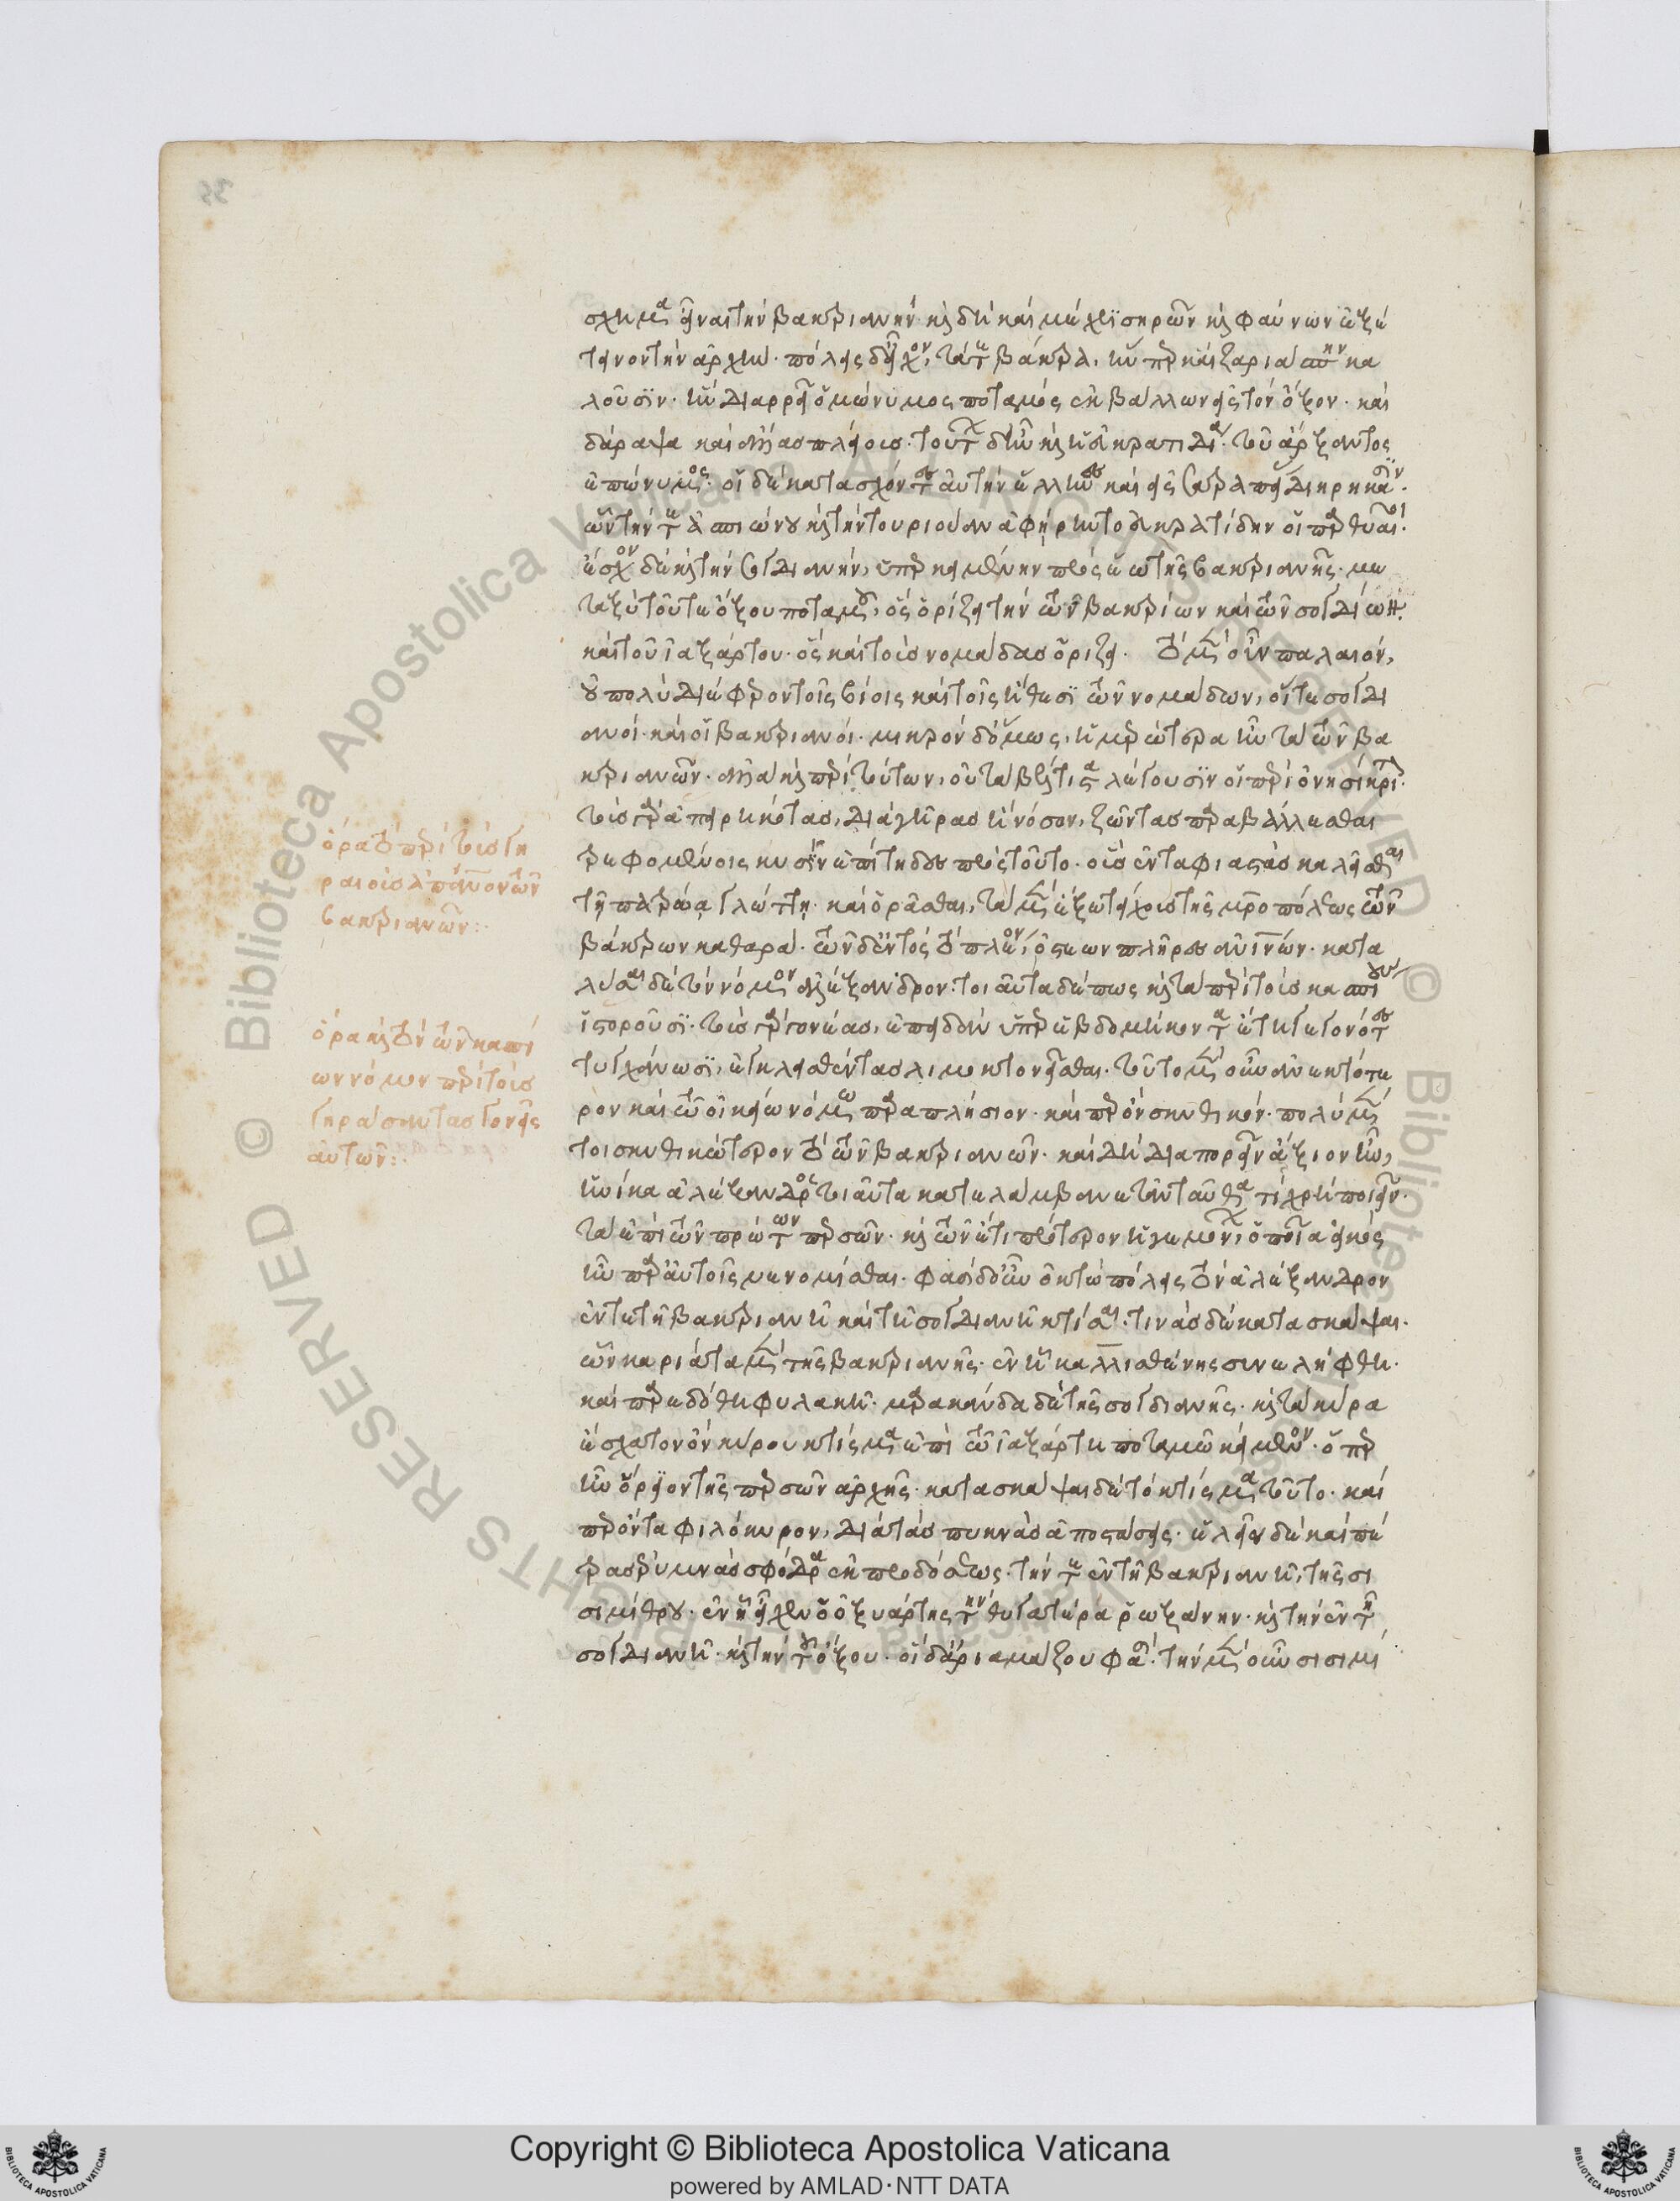 σχῆμα εἶναι τὴν βακτριανήν· καὶ δὴ καὶ μέχρι σηρῶν καὶ φαύνων ἐξέ
τεινον τὴν ἀρχήν· πόλεις δ' εἶχον, τά τε βάκτρα, ἥνπερ καὶ ζαριάσπην κα
λοῦσιν· ἣν διαρρεῖ ὁμώνυμος ποταμός ἐμβάλλων εἰς τὸν ὄξον· καὶ
δάραψα καὶ ἄλλας πλείους· τούτων δ' ἦν καὶ ἡ εὐκρατιδία· τοῦ ἄρξαντος
ἐπώνυμος· οἱ δὲ κατασχόντες αὐτὴν ἕλληνες καὶ εἰς σατραπείας διηρήκασιν·
ὧν τήν τε ἀσπιώνου καὶ τὴν τουριούαν ἀφῄρηντο εὐκρατίδην οἱ παρθυαῖοι·
ἔσχον δὲ καὶ τὴν σογδιανήν, ὑπερκειμένην πρὸς ἕω τῆς βακτριανῆς· με
ταξὺ τοῦ τε ὄξου ποταμοῦ, ὃς ὁρίζει τὴν τῶν βακτρίων καὶ τῶν σογδίων·
καὶ τοῦ ἰαξάρτου· ὃς καὶ τοὺς νομάδας ὁρίζει· τὸ μὲν οὖν παλαιόν,
οὐ πολὺ διέφερον τοῖς βίοις καὶ τοῖς ἤθεσι τῶν νομάδων, οἵ τε σογδι
ανοί· καὶ οἱ βακτριανοί· μικρὸν δ' ὅμως, ἡμερώτερα ἦν τὰ τῶν βα
κτριανῶν· ἀλλὰ καὶ περὶ τούτων, οὐ τὰ βέλτιστα λέγουσιν οἱ περὶ ὀνησίκριτον·
τοὺς γὰρ ἀπειρηκότας, διὰ γῆρας ἢ νόσον, ζῶντας παραβάλλεσθαι
τρεφομένοις κυσὶν ἐπίτηδες πρὸς τοῦτο· οὓς ἐνταφιαστὰς καλεῖσθαι
τῇ πατρῴᾳ γλώττῃ· καὶ ὁρᾶσθαι, τὰ μὲν ἔξω τείχους τῆς μητροπόλεως τῶν
βάκτρων καθαρά· τῶν δ' ἐντὸς τὸ πλέον, ὀστέων πλῆρες ἀνθρωπίνων· κατα
λῦσαι δὲ τὸν νόμον ἀλέξανδρον· τοιαῦτα δέ πως καὶ τὰ περὶ τοὺς κασπίους
ἱστοροῦσι· τοὺς γὰρ γονέας, ἐπειδὰν ὑπὲρ ἑβδομήκοντα ἔτη γεγονότες
τυγχάνωσι, ἐγκλεισθέντας λιμοκτονεῖσθαι· τοῦτο μὲν οὖν ἀνεκτότε
ρον καὶ τῷ οἰκείῳ νόμῳ παραπλήσιον· καίπερ ὂν σκυθικόν· πολὺ μέν
τοι σκυθικώτερον τὸ τῶν βακτριανῶν· καὶ δὴ διαπορεῖν ἄξιον ἦν,
ἡνίκα ἀλέξανδρος τοιαῦτα κατελάμβανε τἀνταῦθα τί χρὴ ποιεῖν·
τὰ ἐπὶ τῶν πρώτων περσῶν· καὶ τῶν ἔτι πρότερον ἡγεμόνων, ὁποῖα εἰκὸς
ἦν παρ' αὐτοῖς νενομίσθαι· φασὶ δ' οὖν ὀκτὼ πόλεις τὸν ἀλέξανδρον
ἔν τε τῇ βακτριανῇ καὶ τῇ σογδιανῇ κτίσαι· τινὰς δὲ κατασκάψαι·
ὧν καριάτα μὲν τῆς βακτριανῆς· ἐν ᾗ καλλισθένης συνελήφθη·
καὶ παρεδόθη φυλακῇ· μαράκανδα δὲ τῆς σογδιανῆς· καὶ τὰ κύρα
ἔσχατον ὂν κύρου κτίσμα ἐπὶ τῷ ἰαξάρτῃ ποταμῷ κείμενον· ὅπερ
ἦν ὅριον τῆς περσῶν ἀρχῆς· κατασκάψαι δὲ τὸ κτίσμα τοῦτο· καί
περ ὄντα φιλόκυρον, διὰ τὰς πυκνὰς ἀποστάσεις· ἑλεῖν δὲ καὶ πέ
τρας ἐρυμνὰς σφόδρα ἐκ προδόσεως· τήν τε ἐν τῇ βακτριανῇ, τὴν σι
σιμίθρου· ἐν ᾗ εἶχεν ὁ ὀξυάρτης τὴν θυγατέρα ῥωξάνην· καὶ τὴν ἐν τῇ
σογδιανῇ· καὶ τὴν τοῦ ὄξου· οἱ δ' ἀριαμάζου φασί· τὴν μὲν οὖν σισιμί
ὅρα τὸ περὶ τοὺς γη
ραιοὺς ἀπάνθρωπον τῶν
βακτριανῶν:
ὅρα καὶ τὸν τῶν κασπί
ων νόμον περὶ τοὺς
γηράσαντας γονεῖς
αὐτῶν:
Copyright © Biblioteca Apostolica Vaticana
powered by AMLAD·NTT DATA